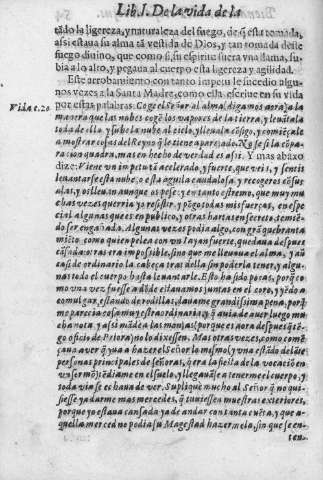 Lib. I. De la vida de la
tãdo la ligereza, y naturaleza del fuego, de q̃ esta tomada,
assi estaua su alma tã vestida de Dios, y tan tomada deste
fuego diuino, que como si su espiritu fuera vna llama, su-
bia a lo alto, y pegaua al cuerpo essa ligereza y agilidad.
Este arrobamiento con tanto impetu le sucedio algu-
nos vezes a la Santa Madre, como ella escriue en su vida
Vida c. 20
por estas palabras. Coge el Señor al alma (digamos aora) a la
manera que las nubes cogẽ los vapores de la tierra, y leuãtala
toda de ella y sube la nube al cielo, y lleuala cõsigo, y comiẽçale
a mostrar cosas del Reyno q̃ le tiene aparejado. No se si la cõpa-
racion quadra, mas en hecho de verdad es assi. Y mas abaxo
dize: Viene vn impetu tã acelerado, y fuerte, que veis, y sentis
leuantarse esta nube, o esta aguila caudalosa, y recogeros cõ sus
alas, y os lleuan aunque os pese; y en tanto estremo, que muy mu
chas vezes querria yo resistir, y põgo todas mis fuerças, en espe
cial algunas que es en publico, y otras hartas en secreto, temiẽ-
do ser engañada. Algunas vezes podia algo, con grã quebranta
miẽto como quien pelea con vn Iayan fuerte, quedaua despues
cãsada: otras era impossible, sino que me lleuaua el alma, y aũ
casi de ordinario la cabeça tras ella, sin poderla tener, y algu-
nas todo el cuerpo hasta leuantarle. Esto ha sido pocas, porq̃ co
mo vna vez fuesse adõde estauamos juntas en el coro, y yẽdo a
comulgar, estando de rodillas, dauame grandissima pena, porq̃
me parecia cosa muy estraordinaria, y q̃ auia de auer luego mu
cha nota, y assi mãde a las monjas (porque es aora despues q̃ tẽ-
go oficio de Priora) no lo dixessen. Mas otras vezes, como comẽ-
çaua a ver q̃ yua a hazer el Señor lo mismo (y vna estãdo delãte
personas principales de señoras, q̃ era la fiesta de la vocaciõ en
vn sermõ) tẽdiame en el suelo, y llegauãse a tenerme el cuerpo, y
toda via se echaua de ver. Suplique mucho al Señor q̃ no qui-
siesse ya darme mas mercedes, q̃ tuuiessen muestras exteriores,
porque yo estaua cansada ya de andar con tanta cuẽta, y que a-
quella merced no podia su Magestad hazermela, sin que se en-
ten-